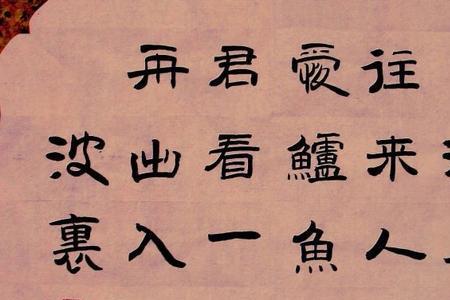 往来人
愛鱸魚
君看一
舟出入
波裏